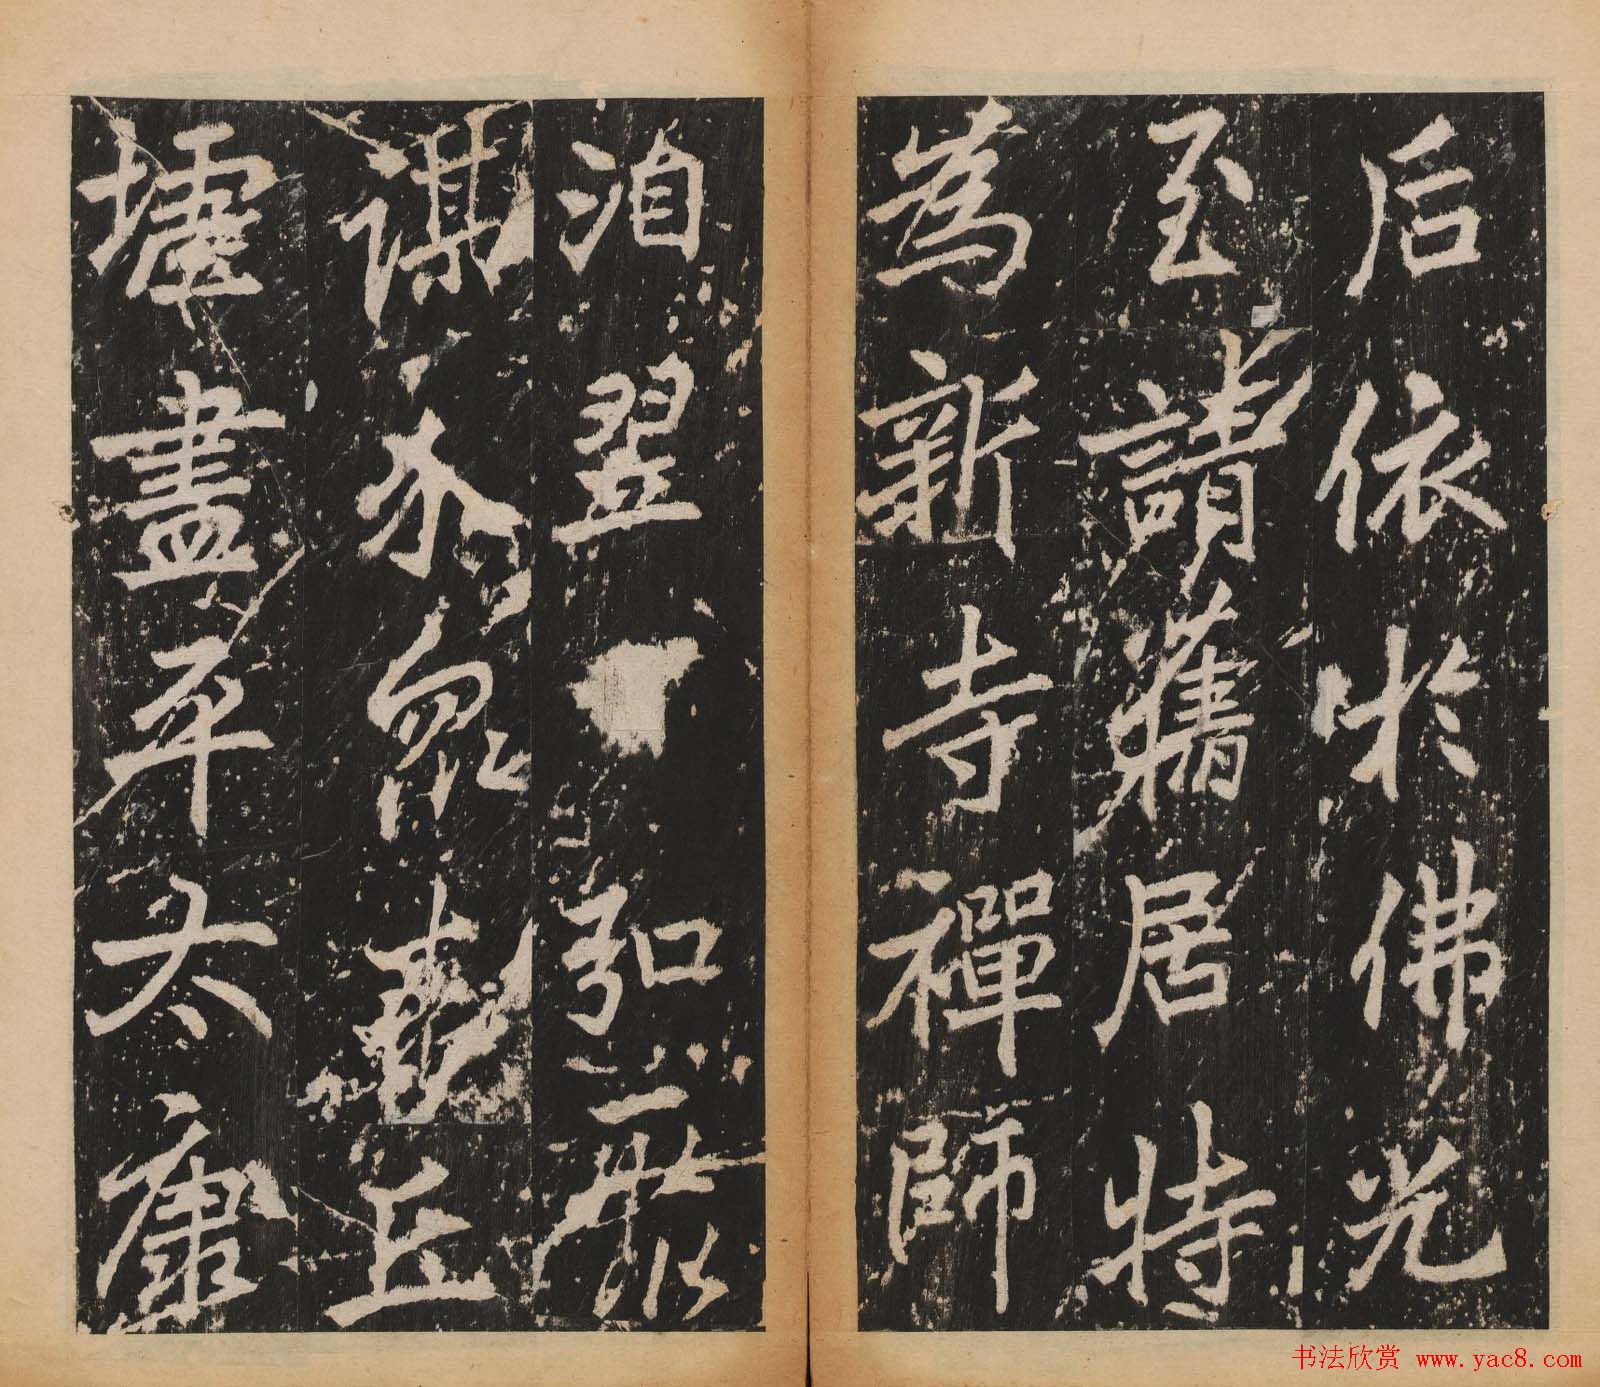 后依於佛光
至請舊居特
為新寺禪師
洎翌弘
謀介眾丘
墟盡平太康
书法欣赏 www.yac8.com